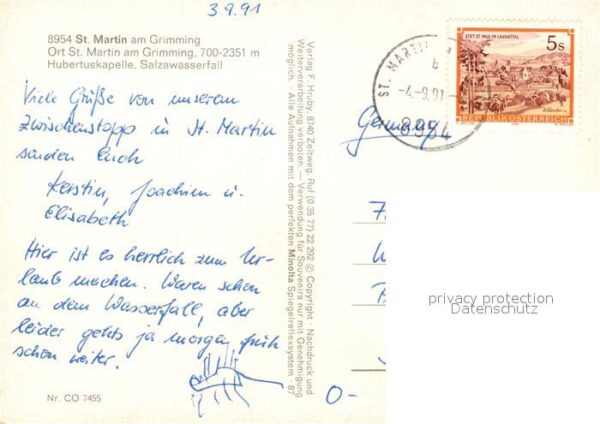 3.9.91
8954 St. Martin am Grimming
Ort St. Martin am Grimming, 700-2351 m
Hubertuskapelle, Salzawasserfall
Viele Grüße von unserem
Zwischenstopp in St. Martin
senden Euch
Kerstin, Joachim u.
Elisabeth
Hier ist es herrlich zum Ur-
laub machen. Waren schon
an dem Wasserfall, aber
leider gehts ja morgen früh
schon weiter.
Nr. CO 7455
Verlag F. Hruby, 8740 Zeltweg, Ruf (0 35 77) 22 292 © Copyright · Nachdruck und
Weiterverarbeitung verboten — Verwendung für Souvenirs nur mit Genehmigung
möglich · Alle Aufnahmen mit dem perfekten Minolta Spiegelreflexsystem '87
ST. MARTIN
-4.-9.91-
8954
STIFT ST. PAUL IM LAVANTTAL
5s
REPUBLIK ÖSTERREICH
Germany
privacy protection
Datenschutz